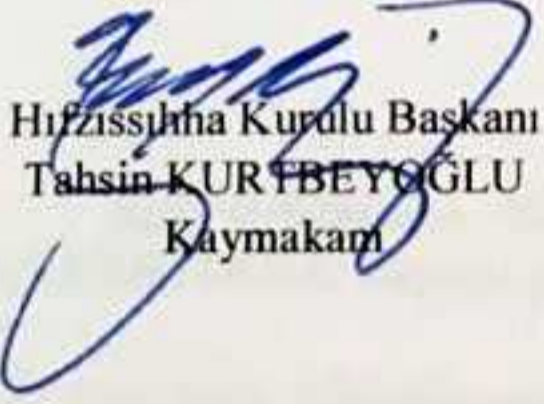 Hıfzıssıhha Kurulu Başkanı
Tahsin KURTBEYOĞLU
Kaymakam